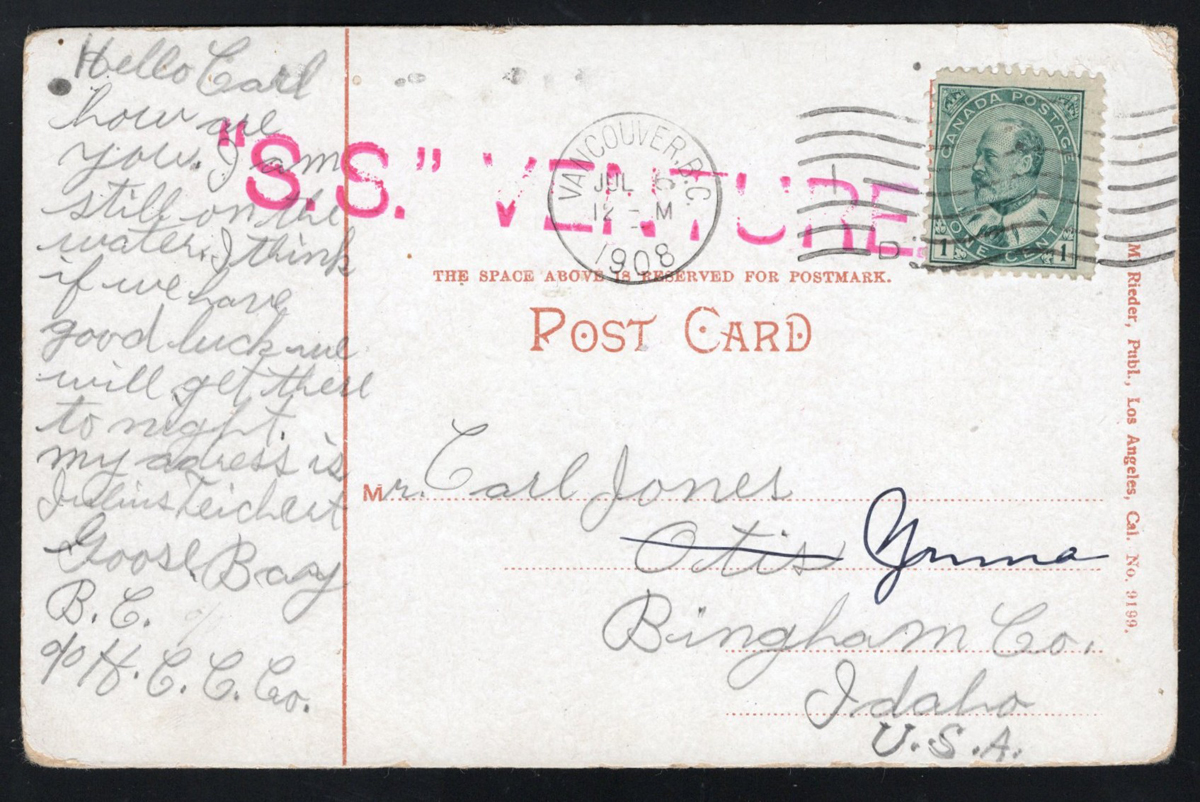 Hello Carl
how are
you. I am
still on the
water. I think
if we have
good luck we
will get there
to night.
my adress is
Julius Teichert
Goose Bay
B.C.
c/o H. C. C. Co.
"S.S." VENTURE
VANCOUVER, B.C.
JUL
12 - M
1908
D
CANADA POSTAGE
1 ONE CENT 1
THE SPACE ABOVE IS RESERVED FOR POSTMARK.
POST CARD
Mr. Carl Jones
Otis
Bingham Co.
Idaho
U.S.A.
M. Rieder, Publ., Los Angeles, Cal. No. 9199.